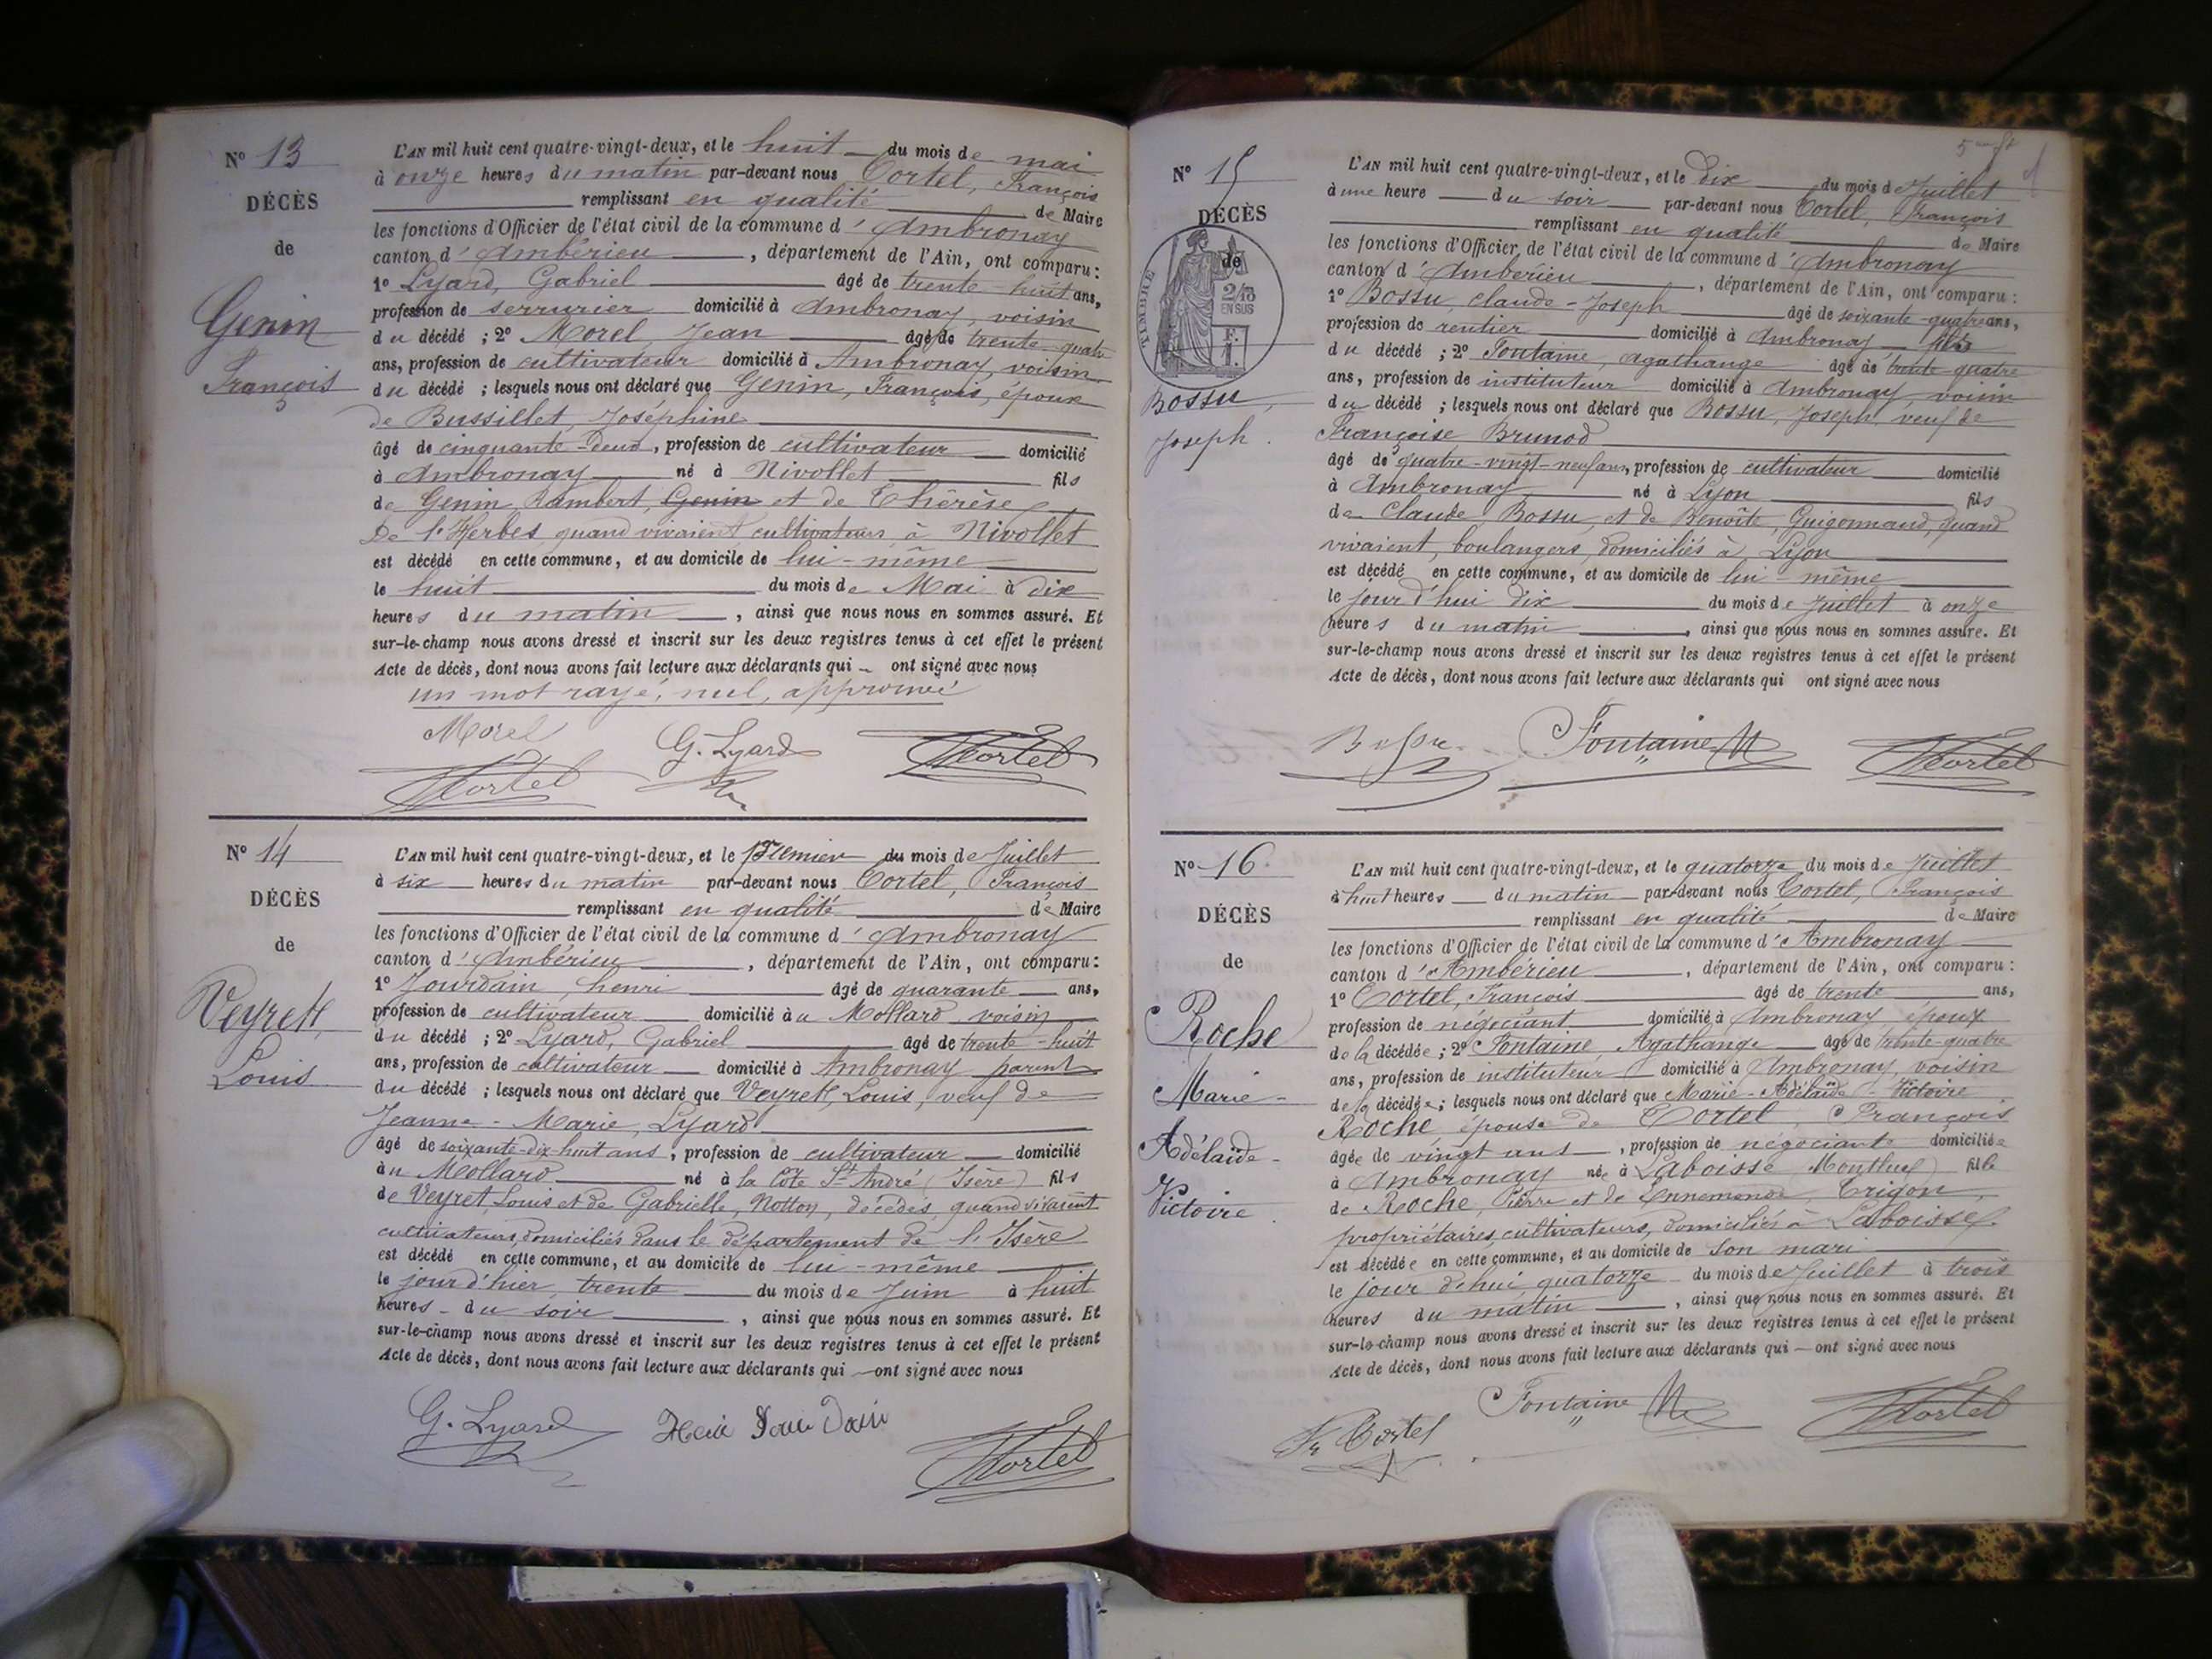 N° 13
DÉCÈS
de
Genin
François
L'AN mil huit cent quatre-vingt-deux, et le huit du mois de mai
à onze heures du matin par-devant nous Cortel, François
remplissant en qualité de Maire
les fonctions d'Officier de l'état civil de la commune d'Ambronay
canton d'Ambérieu, département de l'Ain, ont comparu :
1° Lyard, Gabriel âgé de trente-huit ans,
profession de serrurier domicilié à Ambronay, voisin
du décédé ; 2° Morel, Jean âgé de trente-quatre
ans, profession de cultivateur domicilié à Ambronay, voisin
du décédé ; lesquels nous ont déclaré que Genin, François, époux
de Bussillet, Joséphine
âgé de cinquante-deux, profession de cultivateur domicilié
à Ambronay né à Nivollet fils
de Genin, Rambert, Genin et de Thérèse
De l'Herbes quand vivaient cultivateurs à Nivollet
est décédé en cette commune, et au domicile de lui-même
le huit du mois de Mai à dix
heures du matin, ainsi que nous nous en sommes assuré. Et
sur-le-champ nous avons dressé et inscrit sur les deux registres tenus à cet effet le présent
Acte de décès, dont nous avons fait lecture aux déclarants qui ont signé avec nous
un mot rayé, nul, approuvé
Morel
G. Lyard
Cortel
Cortel
N° 14
DÉCÈS
de
Veyrett,
Louis
L'AN mil huit cent quatre-vingt-deux, et le premier du mois de Juillet
à six heures du matin par-devant nous Cortel, François
remplissant en qualité de Maire
les fonctions d'Officier de l'état civil de la commune d'Ambronay
canton d'Ambérieu, département de l'Ain, ont comparu :
1° Jourdain, henri âgé de quarante ans,
profession de cultivateur domicilié au Mollard voisin
du décédé ; 2° Lyard, Gabriel âgé de trente-huit
ans, profession de cultivateur domicilié à Ambronay parent
du décédé ; lesquels nous ont déclaré que Veyrett, Louis, veuf de
Jeanne-Marie, Lyard
âgé de soixante-dix-huit ans, profession de cultivateur domicilié
au Mollard né à la Côte St André (Isère) fils
de Veyret, Louis et de Gabrielle, Notton, décédés, quand vivaient
cultivateurs, domiciliés dans le département de l'Isère
est décédé en cette commune, et au domicile de lui-même
le jour d'hier, trente du mois de Juin à huit
heures du soir, ainsi que nous nous en sommes assuré. Et
sur-le-champ nous avons dressé et inscrit sur les deux registres tenus à cet effet le présent
Acte de décès, dont nous avons fait lecture aux déclarants qui ont signé avec nous
G. Lyard
Cortel
N° 15
DÉCÈS
de
TIMBRE
2/10
EN SUS
F.
1.
Bossu,
Joseph.
L'AN mil huit cent quatre-vingt-deux, et le dix du mois de Juillet
à une heure du soir par-devant nous Cortel, François
remplissant en qualité de Maire
les fonctions d'Officier de l'état civil de la commune d'Ambronay
canton d'Ambérieu, département de l'Ain, ont comparu :
1° Bossu, claude-Joseph âgé de soixante-quatre ans,
profession de rentier domicilié à Ambronay fils
du décédé ; 2° Fontaine, agathange âgé de trente-quatre
ans, profession de instituteur domicilié à Ambronay, voisin
du décédé ; lesquels nous ont déclaré que Bossu, Joseph, veuf de
Françoise Brunod
âgé de quatre-vingt-neuf ans, profession de cultivateur domicilié
à Ambronay né à Lyon fils
de Claude Bossu, et de Benoîte, Guigonnand, quand
vivaient, boulangers, domiciliés à Lyon
est décédé en cette commune, et au domicile de lui-même
le jour d'hui dix du mois de Juillet à onze
heures du matin, ainsi que nous nous en sommes assuré. Et
sur-le-champ nous avons dressé et inscrit sur les deux registres tenus à cet effet le présent
Acte de décès, dont nous avons fait lecture aux déclarants qui ont signé avec nous
Bossu
Fontaine
Cortel
N° 16.
DÉCÈS
de
Roche
Marie-
Adélaïde-
Victoire.
L'AN mil huit cent quatre-vingt-deux, et le quatorze du mois de Juillet
à huit heures du matin par-devant nous Cortel, François
remplissant en qualité de Maire
les fonctions d'Officier de l'état civil de la commune d'Ambronay
canton d'Ambérieu, département de l'Ain, ont comparu :
1° Cortel, François âgé de trente ans,
profession de négociant domicilié à Ambronay époux
de la décédée ; 2° Fontaine, Agathange âgé de trente-quatre
ans, profession de instituteur domicilié à Ambronay, voisin
de la décédée ; lesquels nous ont déclaré que Marie-Adélaïde-Victoire
Roche, épouse de Cortel, François
âgée de vingt ans, profession de négociante domiciliée
à Ambronay née à Laboisse (Montluel) fille
de Roche, Pierre et de Ennemonde, Trigon,
propriétaires, cultivateurs, domiciliés à Laboisse.
est décédée en cette commune, et au domicile de son mari
le jour d'hui quatorze du mois de Juillet à trois
heures du matin, ainsi que nous nous en sommes assuré. Et
sur-le-champ nous avons dressé et inscrit sur les deux registres tenus à cet effet le présent
Acte de décès, dont nous avons fait lecture aux déclarants qui ont signé avec nous
Fr Cortel
Fontaine
Cortel